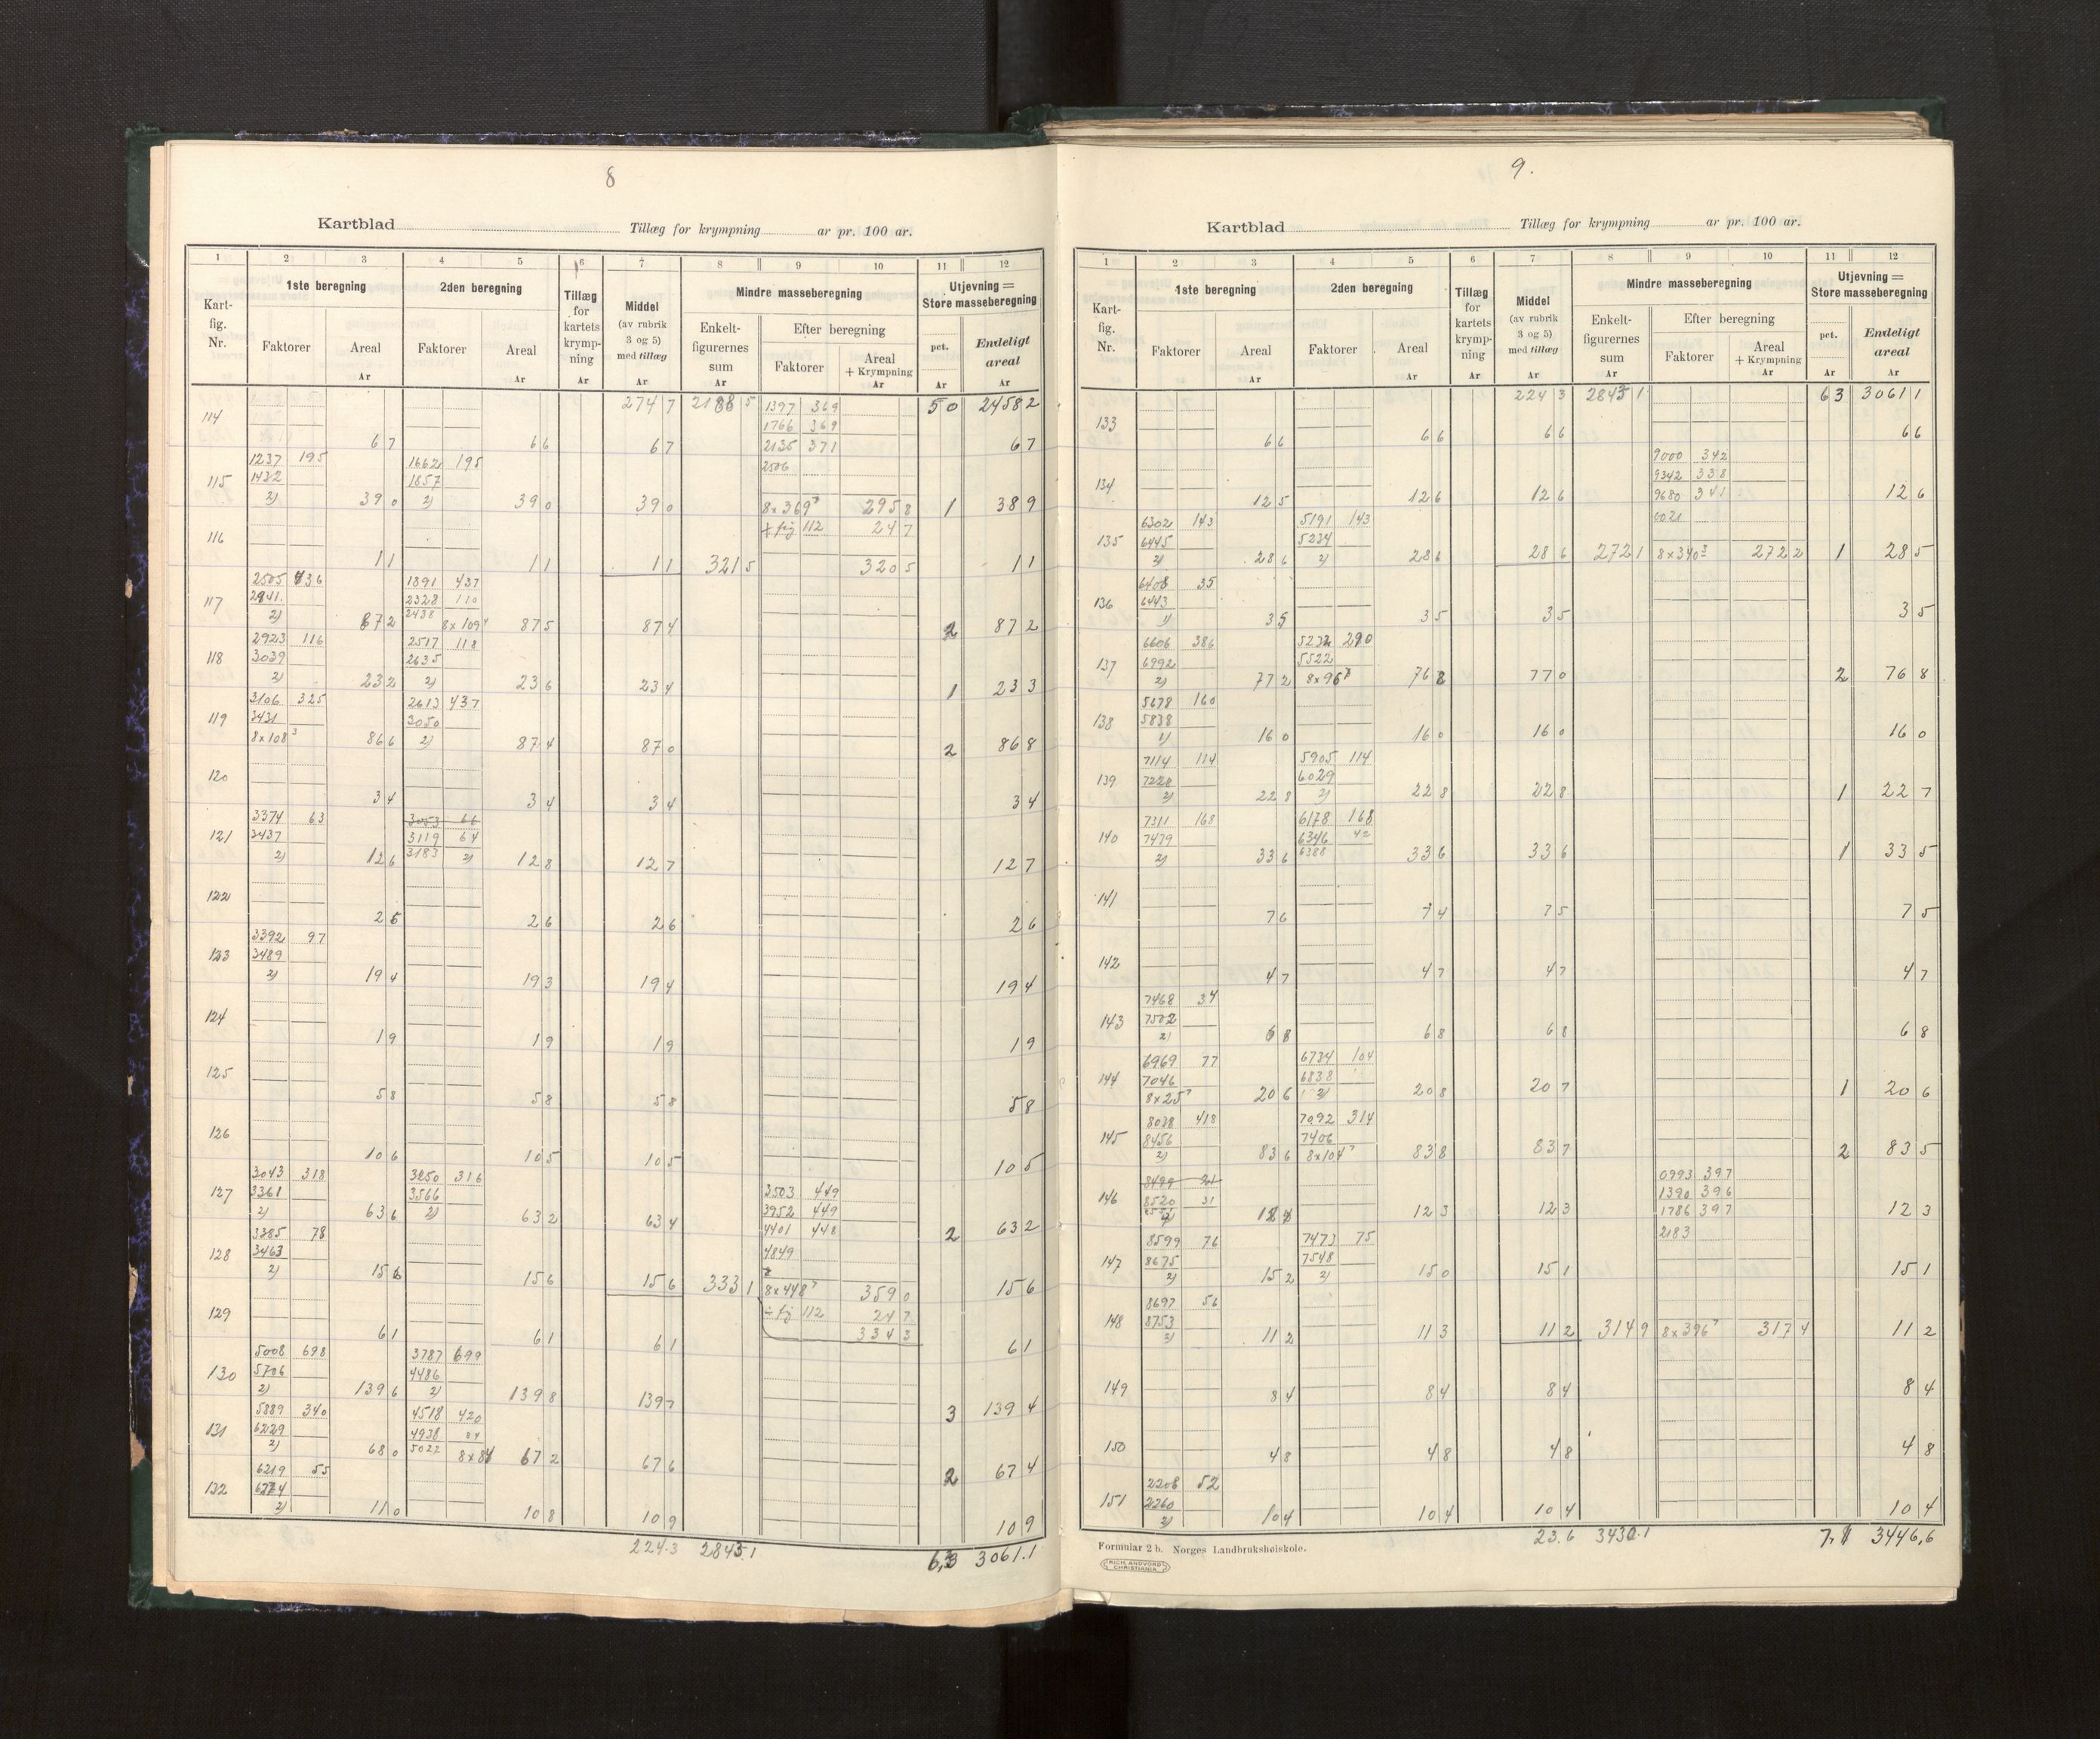 8
Kartblad Tillæg for krympning ar pr. 100 ar.
1 2 3 4 5 6 7 8 9 10 11 12
Kart-fig. Nr. 1ste beregning 2den beregning Tillæg for kartets krympning Middel (av rubrik 3 og 5) med tillæg Mindre masseberegning Utjevning = Store masseberegning
Faktorer Areal Faktorer Areal Enkelt-figurernes sum Efter beregning pct. Endeligt areal
Faktorer Areal + Krympning
Ar Ar Ar Ar Ar Ar Ar Ar
274 7 2188 5 1397 369 50 2458 2
114 1766 369
6 7 6 6 6 7 2135 371 6 7
1237 195 1662 195 2506
115 1432 1857
2) 39 0 2) 39 0 39 0 8x369⁷ 295 8 1 38 9
116 + fig 112 24 7
1 1 1 1 1 1 321 5 320 5 1 1
2505 436 1891 437
117 2941 2328 110
2) 87 2 2438 8x109⁴ 87 5 87 4 2 87 2
2923 116 2517 118
118 3039 2635
2) 23 2 2) 23 6 23 4 1 23 3
3106 325 2613 437
119 3431 3050
8x108³ 86 6 2) 87 4 87 0 2 86 8
120
3 4 3 4 3 4 3 4
3374 63 3053 66
121 3437 3119 64
2) 12 6 3183 2) 12 8 12 7 12 7
122
2 6 2 6 2 6 2 6
3392 97
123 3489
2) 19 4 19 3 19 4 19 4
124
1 9 1 9 1 9 1 9
125
5 8 5 8 5 8 5 8
126
10 6 10 5 10 5 10 5
3043 318 3250 316
127 3361 3566 3503 449
2) 63 6 2) 63 2 63 4 3952 449 2 63 2
3385 78 4401 448
128 3463 4849
2) 15 6 15 6 15 6 333 1 8x448⁷ 359 0 15 6
129 ÷ fig 112 24 7
6 1 6 1 6 1 334 3 6 1
5008 698 3787 699
130 5706 4486
2) 139 6 2) 139 8 139 7 3 139 4
5889 340 4518 420
131 6229 4938 84
2) 68 0 5022 8x84 67 2 67 6 2 67 4
6219 55
132 6274
2) 11 0 10 8 10 9 10 9
224.3 2843.1 6,3 3061.1
9.
Kartblad Tillæg for krympning ar pr. 100 ar.
1 2 3 4 5 6 7 8 9 10 11 12
Kart-fig. Nr. 1ste beregning 2den beregning Tillæg for kartets krympning Middel (av rubrik 3 og 5) med tillæg Mindre masseberegning Utjevning = Store masseberegning
Faktorer Areal Faktorer Areal Enkelt-figurernes sum Efter beregning pct. Endeligt areal
Faktorer Areal + Krympning
Ar Ar Ar Ar Ar Ar Ar Ar
224 3 2843 1 6 3 3061 1
133
6 6 6 6 6 6 6 6
9000 342
134 9342 338
12 5 12 6 12 6 9680 341 12 6
6302 143 5191 143 0021
135 6445 5234
2) 28 6 2) 28 6 28 6 272 1 8x340³ 272 2 1 28 5
6408 35
136 6443
1) 3 5 3 5 3 5 3 5
6606 386 5232 290
137 6992 5522
2) 77 2 8x96⁷ 76 8 77 0 2 76 8
5678 160
138 5838
1) 16 0 16 0 16 0 16 0
7114 114 5905 114
139 7228 6029
2) 22 8 2) 22 8 22 8 1 22 7
7311 168 6178 168
140 7479 6346 42
2) 33 6 6388 33 6 33 6 1 33 5
141
7 6 7 4 7 5 7 5
142
4 7 4 7 4 7 4 7
7468 34
143 7502
2) 6 8 6 8 6 8 6 8
6969 77 6734 104
144 7046 6838
8x25⁷ 20 6 2) 20 8 20 7 1 20 6
8038 418 7092 314
145 8456 7406
2) 83 6 8x104⁷ 83 8 83 7 2 83 5
8499 21 0993 397
146 8520 31 1390 396
12 4 12 3 12 3 1786 397 12 3
8599 76 7473 75 2183
147 8675 7548
2) 15 2 2) 15 0 15 1 15 1
8697 56
148 8753
2) 11 2 11 3 11 2 314 9 8x396⁷ 317 4 11 2
149
8 4 8 4 8 4 8 4
150
4 8 4 8 4 8 4 8
2208 52
151 2260
2) 10 4 10 4 10 4 10 4
23.6 3430.1 7,1 3446,6
Formular 2 b. Norges Landbrukshøiskole.
RICH. ANDVORD
CHRISTIANIA